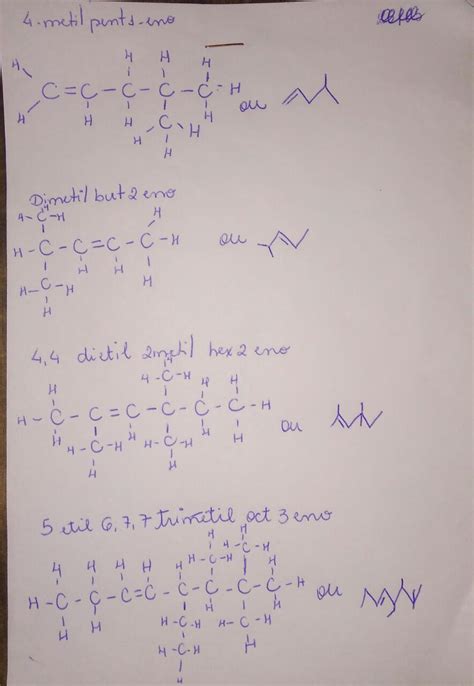 4-metil pent1-eno
H H H
C=C-C-C-C-H ou
H H H C-H H
H
Dimetil but 2 eno
H
H-C-H H
H-C-C=C-C-H ou
H H H
H-C-H
H
4,4 dietil 2metil hex 2 eno
H
H-C-H
H H H
H-C-C=C-C-C-C-H ou
H H H H
H-C-H H-C-H
H H
5 etil 6,7,7 trimetil oct 3 eno
H H H H
H-C-C-C=C-C-C-C-C-H ou
H H H H
H-C-H
H-C-H
H